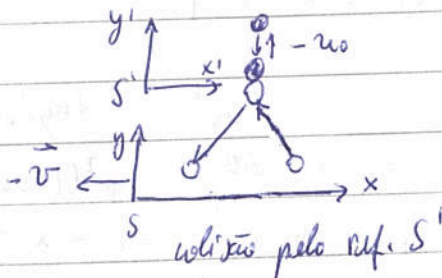 y'
- u₀
S' x'
y
- v⃗
x
S
colisão pelo ref. S'